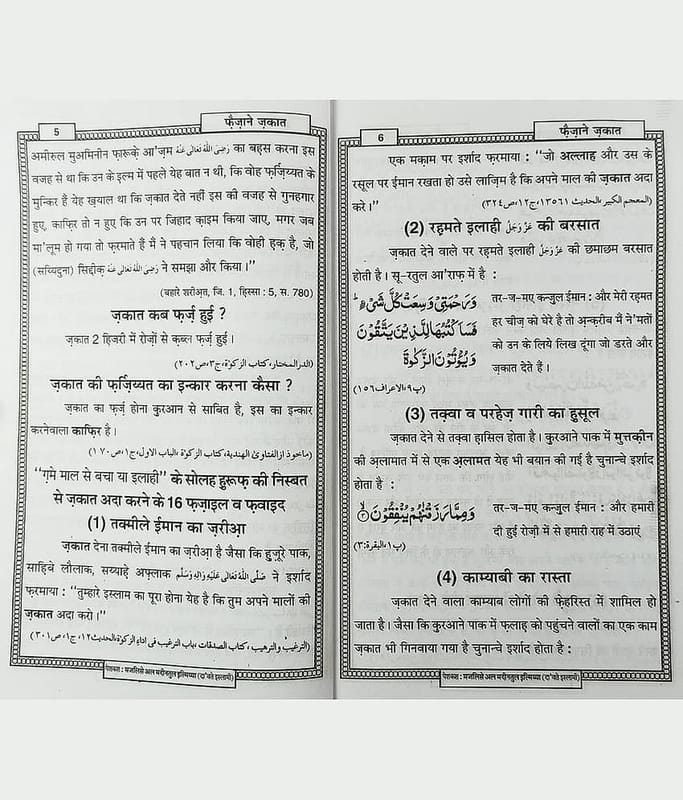 5
फ़ैज़ाने ज़कात
अमीरुल मुअमिनीन फ़ारूक़े आ'ज़म رَضِىَ اللهُ تَعَالٰى عَنْهُ का बहस करना इस
वजह से था कि उन के इल्म में पहले येह बात न थी, कि वोह फ़र्ज़िय्यत के
मुन्किर हैं येह ख़याल था कि ज़कात देते नहीं इस की वजह से गुनहगार
हुए, काफ़िर तो न हुए कि उन पर जिहाद क़ाइम किया जाए, मगर जब
मा'लूम हो गया तो फ़रमाते हैं मैं ने पहचान लिया कि वोही हक़ है, जो
(सय्यिदुना) सिद्दीक़ رَضِىَ اللهُ تَعَالٰى عَنْهُ ने समझा और किया।”
(बहारे शरीअ़त, जि. 1, हिस्सा : 5, स. 780)
ज़कात कब फ़र्ज़ हुई ?
ज़कात 2 हिजरी में रोज़ों से क़ब्ल फ़र्ज़ हुई।
(الدرالمختار، کتاب الزکوۃ، ج۳، ص۲۰۲)
ज़कात की फ़र्ज़िय्यत का इन्कार करना कैसा ?
ज़कात का फ़र्ज़ होना क़ुरआन से साबित है, इस का इन्कार
करनेवाला काफ़िर है।
(ماخوذ از الفتاوی الھندیۃ، کتاب الزکوۃ، الباب الاول، ج۱، ص۱۷۰)
“ग़मे माल से बचा या इलाही” के सोलह हुरूफ़ की निस्बत
से ज़कात अदा करने के 16 फ़ज़ाइल व फ़वाइद
(1) तक्मीले ईमान का ज़रीआ़
ज़कात देना तक्मीले ईमान का ज़रीआ़ है जैसा कि हुज़ूरे पाक,
साहिबे लौलाक, सय्याहे अफ़्लाक صَلَّى اللهُ تَعَالٰى عَلَيْهِ وَاٰلِهٖ وَسَلَّم ने इर्शाद
फ़रमाया : “तुम्हारे इस्लाम का पूरा होना येह है कि तुम अपने मालों की
ज़कात अदा करो।”
(الترغیب والترھیب، کتاب الصدقات، باب الترغیب فی اداءِ الزکوۃ، الحدیث۱۲، ج۱، ص۳۰۱)
पेशकश : मजलिसे अल मदीनतुल इल्मिय्या (दा'वते इस्लामी)
6
फ़ैज़ाने ज़कात
एक मक़ाम पर इर्शाद फ़रमाया : “जो अल्लाह और उस के
रसूल पर ईमान रखता हो उसे लाज़िम है कि अपने माल की ज़कात अदा
करे।” (المعجم الکبیر، الحدیث ۱۳۵۶۱، ج۱۲، ص۳۲۴)
(2) रहमते इलाही عَزَّوَجَلَّ की बरसात
ज़कात देने वाले पर रहमते इलाही عَزَّوَجَلَّ की छमाछम बरसात
होती है। सू-रतुल आ'राफ़ में है :
وَرَحْمَتِیْ وَسِعَتْ كُلَّ شَیْءٍ ؕ
فَسَاَكْتُبُهَا لِلَّذِیْنَ یَتَّقُوْنَ
وَیُؤْتُوْنَ الزَّكٰوةَ
(پ۹، الاعراف ۱۵۶)
तर-ज-मए कन्ज़ुल ईमान : और मेरी रहमत
हर चीज़ को घेरे है तो अ़न्क़रीब मैं ने'मतों
को उन के लिये लिख दूंगा जो डरते और
ज़कात देते हैं।
(3) तक़्वा व परहेज़ गारी का हुसूल
ज़कात देने से तक़्वा हासिल होता है। क़ुरआने पाक में मुत्तक़ीन
की अ़लामात में से एक अ़लामत येह भी बयान की गई है चुनान्चे इर्शाद
होता है :
وَمِمَّا رَزَقْنٰهُمْ یُنْفِقُوْنَ ۙ۳
(پ۱، البقرۃ:۳)
तर-ज-मए कन्ज़ुल ईमान : और हमारी
दी हुई रोज़ी में से हमारी राह में उठाएं
(4) काम्याबी का रास्ता
ज़कात देने वाला काम्याब लोगों की फ़ेहरिस्त में शामिल हो
जाता है। जैसा कि क़ुरआने पाक में फ़लाह को पहुंचने वालों का एक काम
ज़कात भी गिनवाया गया है चुनान्चे इर्शाद होता है :
पेशकश : मजलिसे अल मदीनतुल इल्मिय्या (दा'वते इस्लामी)